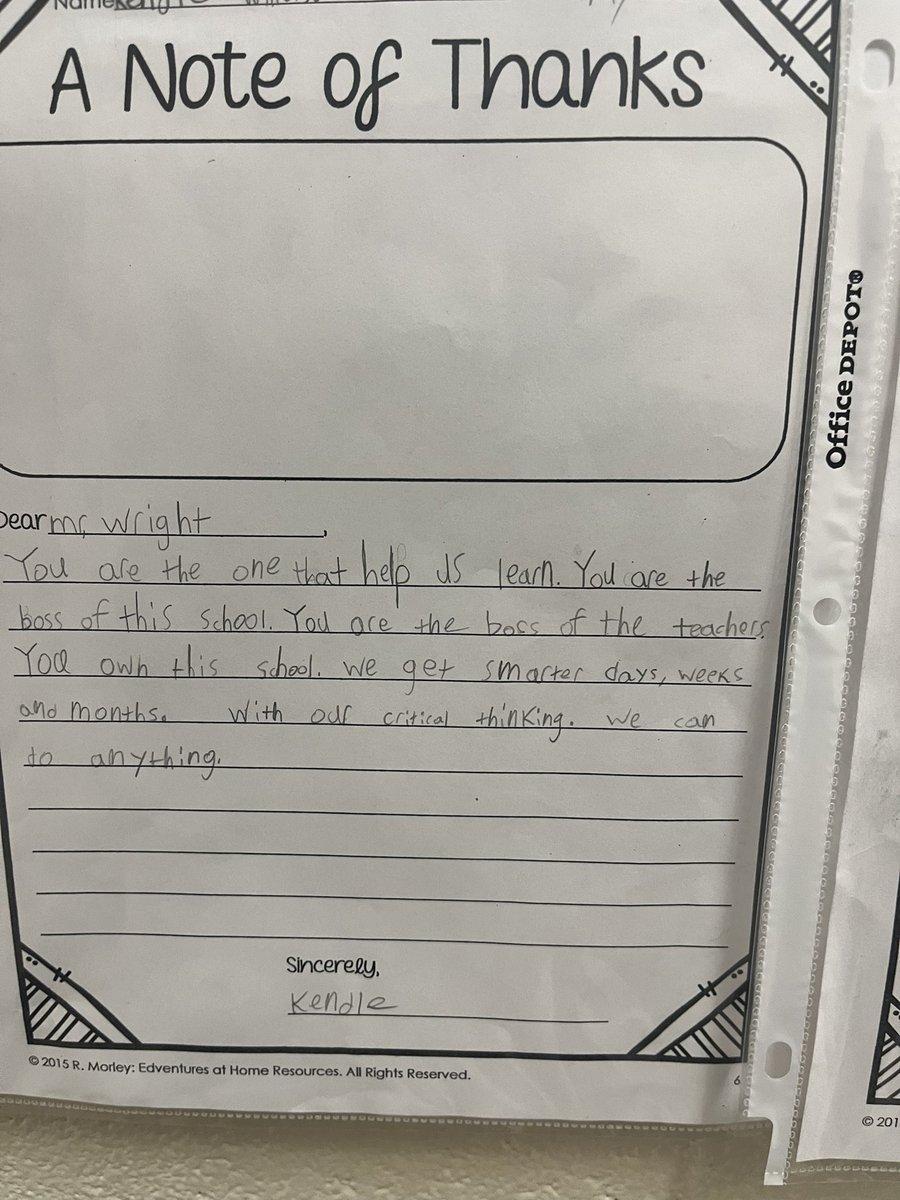 Name
A Note of Thanks
Office DEPOT®
Dear mr wright,
You are the one that help us learn. You are the
boss of this school. You are the boss of the teachers.
You own this school. we get smarter days, weeks
and months. With our critical thinking. we can
to anything.
Sincerely,
Kendle
© 2015 R. Morley: Edventures at Home Resources. All Rights Reserved.
6
© 201